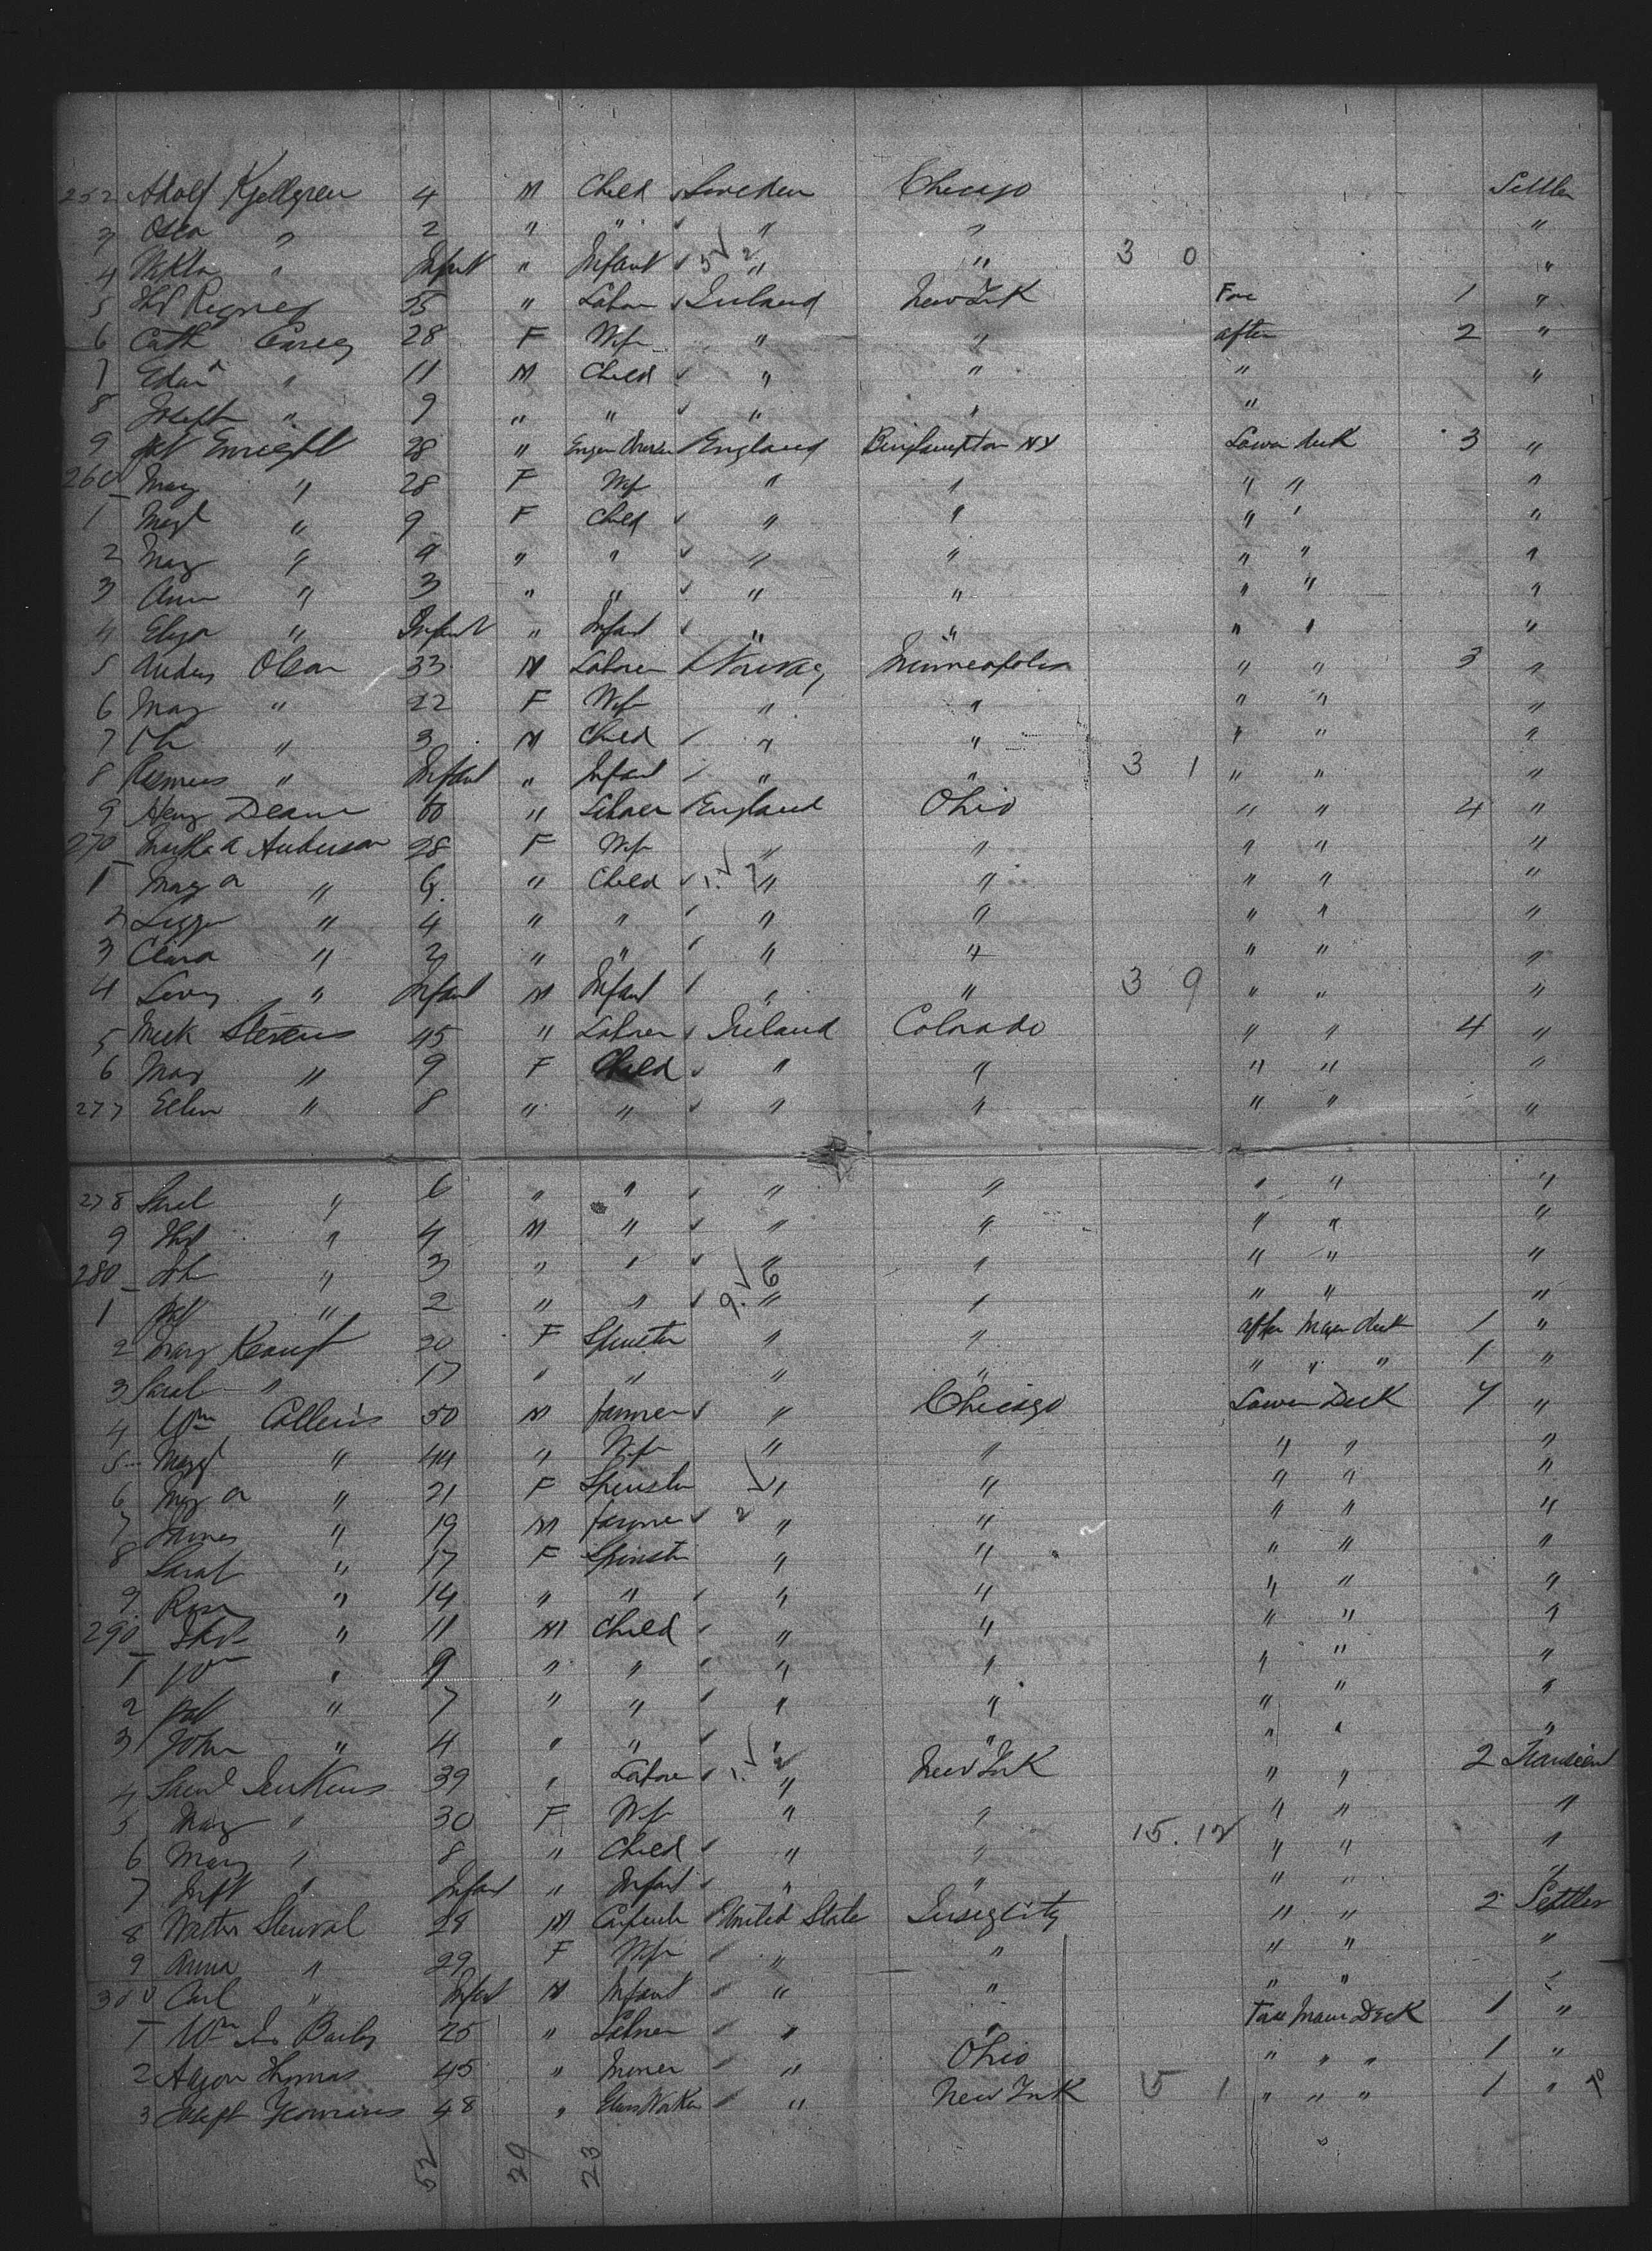 252 Adolf Kjellgren 4 M Child Sweden Chicago Settler
3 " 2 " " " " "
4 " Infant " Infant " " 3 0 "
5 Thos 55 " Labor Ireland New York Fore 1 "
6 Cath Carey 28 F Wife " " after 2 "
7 Edwd " 11 M Child " " " "
8 Joseph " 9 " " " " " "
9 Pat Enright 28 " England Binghampton NY Lower deck 3 "
260 Mary " 28 F Wife " " " " "
1 Margt " 9 F Child " " " " "
2 Mary " 9 " " " " " " "
3 Ann " 3 " " " " " " "
4 Eliza " Infant " Infant " " " " "
5 Anders Olsen 33 M Laborer Norway Minneapolis " " 3 "
6 Mary " 22 F Wife " " " " "
7 " 3 M Child " " " " "
8 Rasmus " Infant " Infant " " 3 1 " " "
9 Henry Deane 60 " Laborer England Ohio " " 4 "
270 Martha A Anderson 28 F Wife " " " " "
1 Mary A " 6 " Child " " " " "
2 Lizzie " 4 " " " " " " "
3 Clara " 2 " " " " " " "
4 Levy " Infant M Infant " " 3 9 " " "
5 Mick Stevens 45 " Laborer Ireland Colorado " " 4 "
6 Mary " 9 F Child " " " " "
277 Ellen " 8 " " " " " " "
278 Sarah " 6 " " " " " " "
9 Thos " 4 M " " " " " "
280 John " 3 " " " " " " "
1 Pat " 2 " " 9. 6 " " " " "
2 Mary 20 F Spinster " " after Main deck 1 "
3 Sarah " 17 " " " " " " " 1 "
4 Wm Collins 50 M farmer " Chicago Lower Deck 7 "
5 Margt " 44 " Wife " " " " "
6 Mary A " 21 F Spinster " " " " "
7 James " 19 M farmer 2 " " " " "
8 Sarah " 17 F Spinster " " " " "
9 Rose " 14 " " " " " " "
290 Thos " 11 M Child " " " " "
1 Wm " 9 " " " " " " "
2 Pat " 7 " " " " " " "
3 John " 4 " " " " " " "
4 Saml Jenkins 39 " Labore " New York " " 2 Transient
5 Mary " 30 F Wife " " " " "
6 Mary " 8 " Child " " 15. 12 " " "
7 Inft " Infant " Infant " " " " "
8 29 M United State Jersey City " " 2 Settler
9 Anna " 29 F Wife " " " " "
300 Carl " Infant M Infant " " " " "
1 Wm 25 " Laborer " " Fore Main Deck 1 "
2 Thomas 45 " Miner " Ohio " " " 1 "
3 Joseph Yeomans 48 " Glass Worker " New York 5 1 " " " 1 "
52 29 23